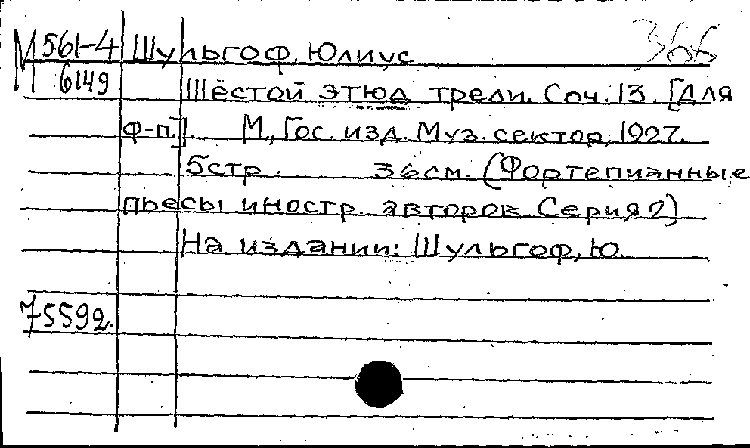 366
М 561-4 Шульгоф, Юлиус
6149 Шестой этюд трели. Соч. 13. [Для
ф-п.]. М., Гос. изд. Муз. сектор, 1927.
5 стр. 36 см. (Фортепианные
пьесы иностр. авторов. Серия 2)
На издании: Шульгоф, Ю.
75592.